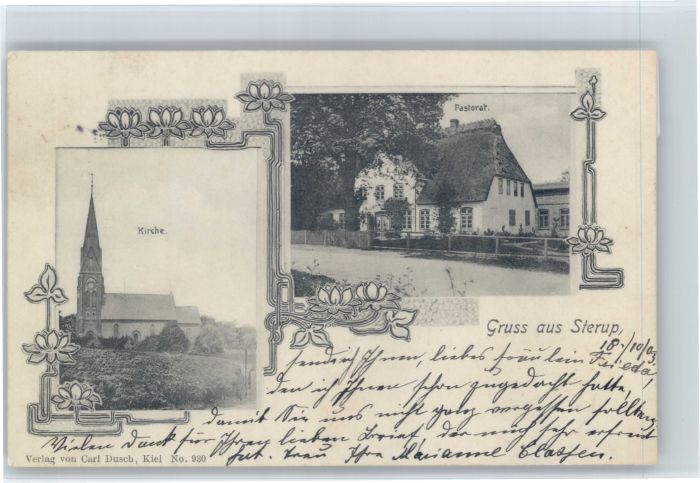 Pastorat.
Kirche.
Gruss aus Sterup,
18./10/03
sende ich Ihnen, liebes Fräulein Frieda,
den ich Ihnen schon zugedacht hatte,
damit Sie uns nicht ganz vergessen sollten.
Vielen Dank für Ihren lieben Brief, der mich sehr erfreut
hat. Ihre Marianne Classen.
Verlag von Carl Dusch, Kiel No. 930